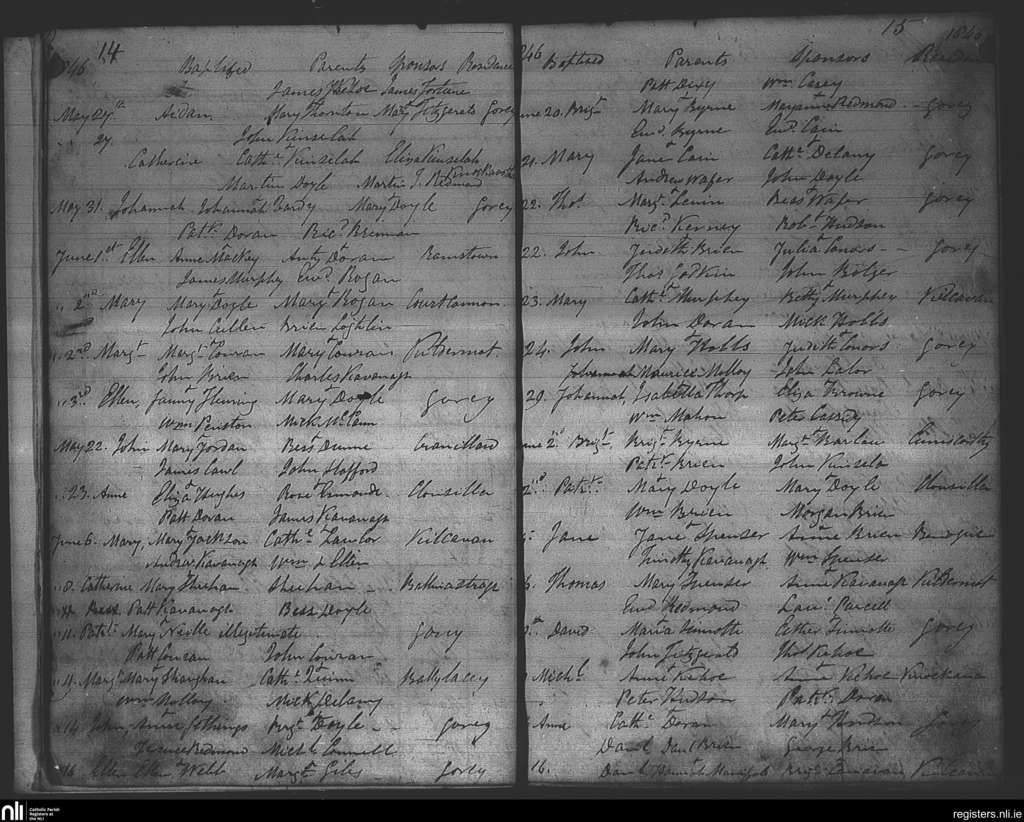 14
1846 Baptised Parents Sponsors Residence
James Kehoe James Fortune
May 24th Aidan Mary Thornton Maty Fitzgerald Gorey
27 John Kinselah
Catherine Cathe Kinselah Eliza Kinselah
Martin Doyle Martin J. Redmond
May 31. Johannah Johannah Mary Doyle Gorey
Patk Doran Ricd Brennan
June 1st Ellen Anne Mackey Anty Doran Ramstown
James Murphy Ewd Bogan
" 2nd Mary Mary Doyle Margt Bogan Courtcannon.
John Cullen Brien Loghlin
" 2nd Margt Margt Conran Mary Conran Kildermot.
John Brien Charles Kavanagh
" 3rd Ellen, Fanny Fleming Mary Doyle Gorey
Wm Mick McCann
May 22. John Mary Jordan Bess Dunne
James Cawl John Stafford
" 23. Anne Eliza Hughes Rose Clonsilla
Patt Doran James Kavanagh
June 6. Mary, Mary Jackson Cathe Lawlor Kilcavan
Andrew Kavanagh Wm & Ellen
" 8. Catherine Mary Sheehan Sheehan
Bess Patt Kavanagh Bess Doyle
" 11. Patk Mary Neille illegitimate Gorey
Patt Conran John Conran
Margt Mary Shaughan Cathe Quinn Ballylacey
Wm Molloy Mick Delany
" 14 John, Anne Gethings Brigt Doyle Gorey
Terence Redmond Michl Connell
16 Ellen Ellen Webb Margt Giles Gorey
15 1846
1846 Baptised Parents Sponsors Residence
Patt Wm Casey
June 20. Brigt Mary Byrne Maryanne Redmond Gorey
Ewd. Byrne Ewd. Cain
21. Mary Jane Cain Cathe Delany Gorey
Andrew Wafer John Doyle
22. Thos Margt Bess Wafer Gorey
Ricd. Kerney Robt Hudson
22. John Judith Brien Julia Conors Gorey
Thos Godkin John Bolger
23. Mary Cathe Murphy Betty Murphy Kilcavan
John Doran Mick Hobbs
24. John Mary Hobbs Judith Conors Gorey
Maurice Molloy John Lalor
29. Johannah, Isabella Thorp Eliza Browne Gorey
Wm Mahon Peter Cassidy
June 2d Brigt Brigt Byrne Margt
Patk Brien John Kinsela
2nd Patk Mary Doyle Mary Doyle Clonsilla
Wm Brien Morgan Brien
Jane Jane Spenser Anne Brien
Timothy Kavanagh Wm Spenser
Thomas Mary Spenser Anne Kavanagh Kildermot
Ewd Redmond Laue Purcell
David Maria Sinnotte Esther Sinnotte Gorey
John Fitzgerald Thos Kehoe
Michl Anne Kehoe Anne Kehoe
Peter Hudson Patk Doran
Anne Cathe Doran Mary Hudson Gorey
Danl Brien George Brien
16.
nli Catholic Parish Registers at the NLI
registers.nli.ie